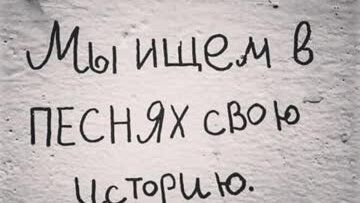 Мы ищем в
ПЕСНЯХ свою
историю.